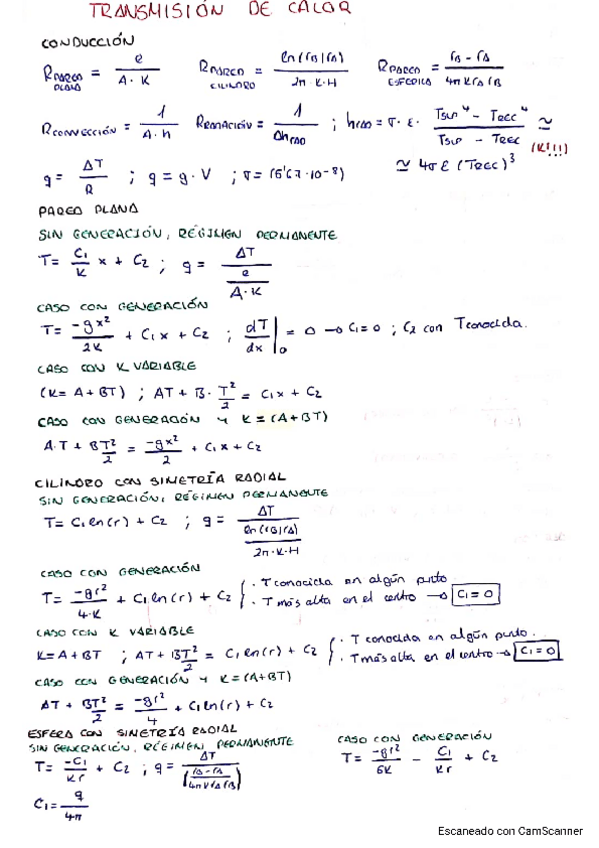 TRANSMISIÓN DE CALOR
CONDUCCIÓN
R PARED PLANA = e / A·K   R PARED CILINDRO = ln(rB/rA) / 2π·K·H   R PARED ESFÉRICA = rB - rA / 4πK rA rB
R CONVECCIÓN = 1 / A·h   R RADIACIÓN = 1 / A hRAD ; hRAD = σ·ε· Tsup⁴ - Trec⁴ / Tsup - Trec ≃ (K!!!)
q = ΔT / R ; q = g·V ; σ = (5'67·10-8)   ≃ 4σε(Trec)³
PARED PLANA
SIN GENERACIÓN, RÉGIMEN PERMANENTE
T = C1/K x + C2 ; q = ΔT / e / A·K
CASO CON GENERACIÓN
T = -gx² / 2K + C1x + C2 ; dT/dx |0 = 0 → C1=0 ; C2 con Tconocida.
CASO CON K VARIABLE
(K = A + BT) ; AT + B·T²/2 = C1x + C2
CASO CON GENERACIÓN Y K = (A+BT)
A·T + BT²/2 = -gx²/2 + C1x + C2
CILINDRO CON SIMETRÍA RADIAL
SIN GENERACIÓN, RÉGIMEN PERMANENTE
T = C1 ln(r) + C2 ; q = ΔT / ln(rB/rA) / 2π·K·H
CASO CON GENERACIÓN
T = -gr² / 4·K + C1 ln(r) + C2 { · T conocida en algún punto
· T más alta en el centro → C1 = 0
CASO CON K VARIABLE
K = A + BT ; AT + BT²/2 = C1 ln(r) + C2 { · T conocida en algún punto.
· T más alta en el centro → C1 = 0
CASO CON GENERACIÓN Y K = (A+BT)
AT + BT²/2 = -gr²/4 + C1 ln(r) + C2
ESFERA CON SIMETRÍA RADIAL
SIN GENERACIÓN, RÉGIMEN PERMANENTE
T = -C1/Kr + C2 ; q = ΔT / (rB-rA / 4πK rA rB)
C1 = q / 4π
CASO CON GENERACIÓN
T = -gr²/6K - C1/Kr + C2
Escaneado con CamScanner